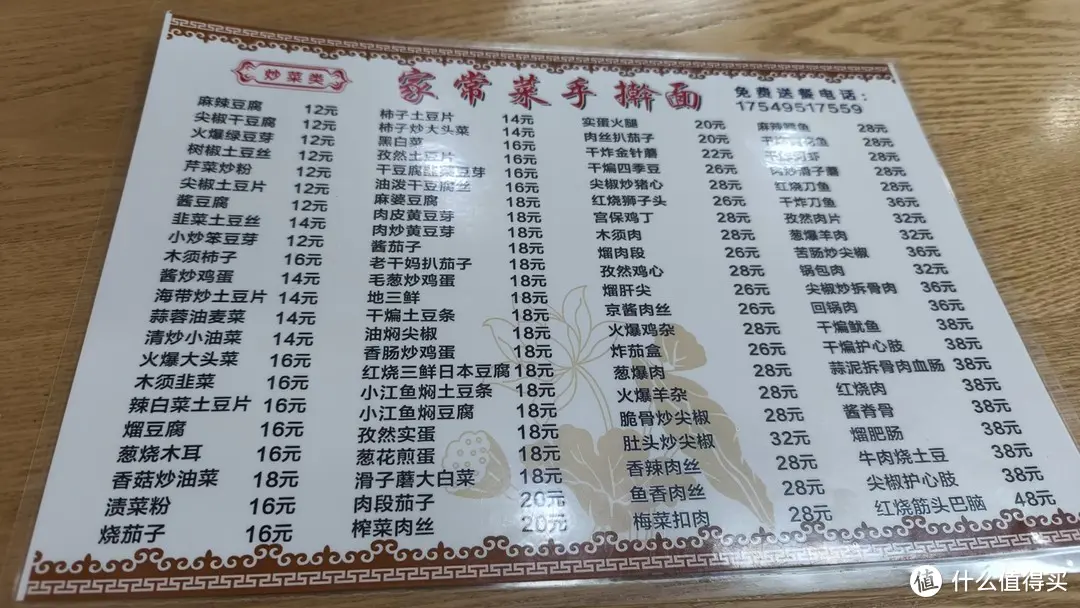 炒菜类
家常菜手擀面
免费送餐电话：
17549517559
麻辣豆腐 12元
尖椒干豆腐 12元
火爆绿豆芽 12元
树椒土豆丝 12元
芹菜炒粉 12元
尖椒土豆片 12元
酱豆腐 12元
韭菜土豆丝 14元
小炒笨豆芽 12元
木须柿子 16元
酱炒鸡蛋 14元
海带炒土豆片 14元
蒜蓉油麦菜 14元
清炒小油菜 14元
火爆大头菜 16元
木须韭菜 16元
辣白菜土豆片 16元
熘豆腐 16元
葱烧木耳 16元
香菇炒油菜 18元
渍菜粉 16元
烧茄子 16元
柿子土豆片 14元
柿子炒大头菜 14元
黑白菜 16元
孜然土豆片 16元
干豆腐韭菜豆芽 16元
油泼干豆腐丝 16元
麻婆豆腐 18元
肉皮黄豆芽 18元
肉炒黄豆芽 18元
酱茄子 18元
老干妈扒茄子 18元
毛葱炒鸡蛋 18元
地三鲜 18元
干煸土豆条 18元
油焖尖椒 18元
香肠炒鸡蛋 18元
红烧三鲜日本豆腐 18元
小江鱼焖土豆条 18元
小江鱼焖豆腐 18元
孜然实蛋 18元
葱花煎蛋 18元
滑子蘑大白菜 18元
肉段茄子 20元
榨菜肉丝 20元
实蛋火腿 20元
肉丝扒茄子 20元
干炸金针蘑 22元
干煸四季豆 26元
尖椒炒猪心 28元
红烧狮子头 26元
宫保鸡丁 28元
木须肉 28元
熘肉段 26元
孜然鸡心 28元
熘肝尖 26元
京酱肉丝 26元
火爆鸡杂 28元
炸茄盒 26元
葱爆肉 28元
火爆羊杂 28元
脆骨炒尖椒 28元
肚头炒尖椒 32元
香辣肉丝 28元
鱼香肉丝 28元
梅菜扣肉 28元
麻辣 鱼 28元
28元
28元
滑子蘑 28元
红烧刀鱼 28元
干炸刀鱼 36元
孜然肉片 32元
葱爆羊肉 32元
苦肠炒尖椒 36元
锅包肉 32元
尖椒炒拆骨肉 36元
回锅肉 36元
干煸鱿鱼 38元
干煸护心肢 38元
蒜泥拆骨肉血肠 38元
红烧肉 38元
酱脊骨 38元
熘肥肠 38元
牛肉烧土豆 38元
尖椒护心肢 38元
红烧筋头巴脑 48元
值 什么值得买